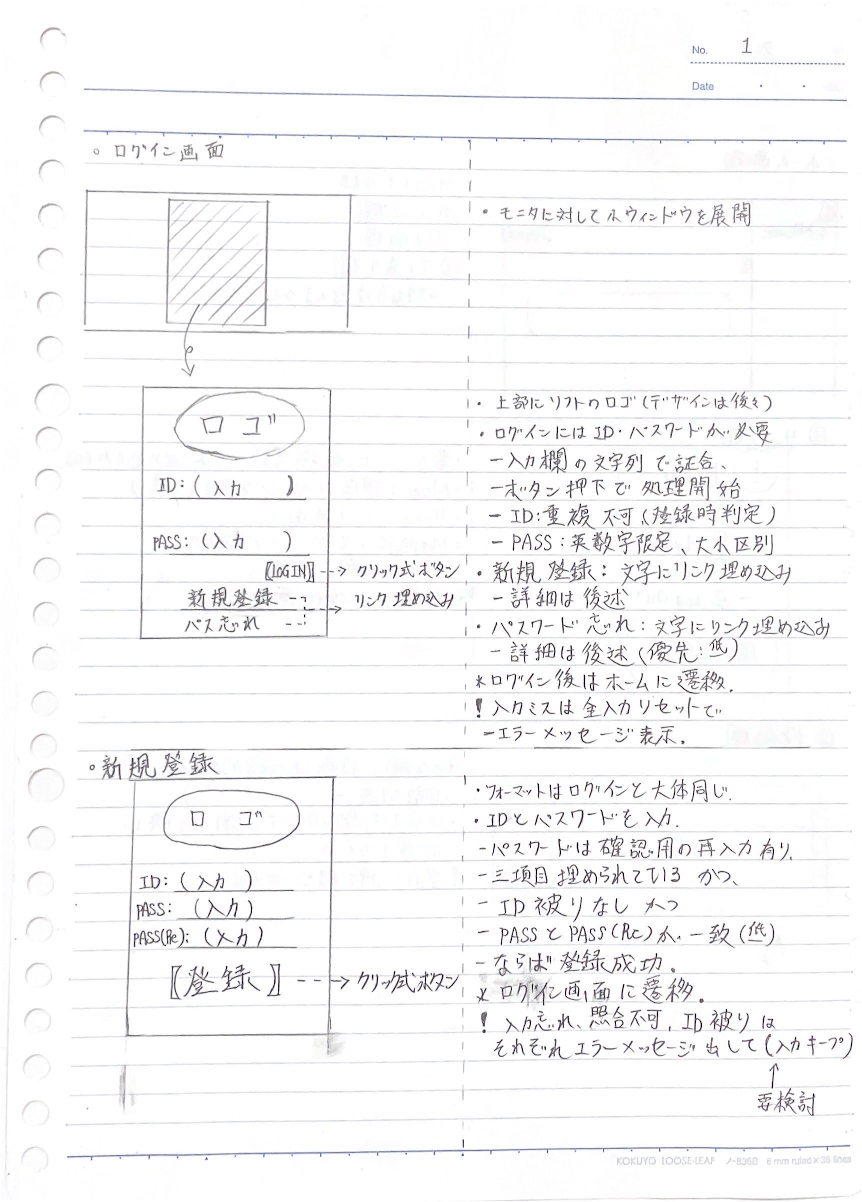 No. 1
Date
。ログイン画面
・モニタに対して小ウィンドウを展開
ロゴ
ID:(入力 )
PASS:(入力 )
〚LOGIN〛--→クリック式ボタン
新規登録--
--→リンク埋め込み
パス忘れ--
・上部にソフトのロゴ(デザインは後々)
・ログインにはID・パスワードが必要
-入力欄の文字列で証合、
-ボタン押下で処理開始
-ID:重複不可(登録時判定)
-PASS:英数字限定、大小区別
・新規登録:文字にリンク埋め込み
-詳細は後述
・パスワード忘れ:文字にリンク埋め込み
-詳細は後述(優先:低)
*ログイン後はホームに遷移.
!入力ミスは全入力リセットで
-エラーメッセージ表示.
。新規登録
ロゴ
ID:(入力)
PASS:(入力)
PASS(Re):(入力)
〚登録〛--→クリック式ボタン
・フォーマットはログインと大体同じ.
・IDとパスワードを入力.
-パスワードは確認用の再入力有り.
-三項目埋められている かつ、
-ID被りなし かつ
-PASSとPASS(Re)が一致(低)
-ならば登録成功.
*ログイン画面に遷移.
!入力忘れ、照合不可, ID被りは
それぞれエラーメッセージ出して(入力キープ)
↑
要検討
KOKUYO LOOSE-LEAF ノ-836B 6 mm ruled×36 lines